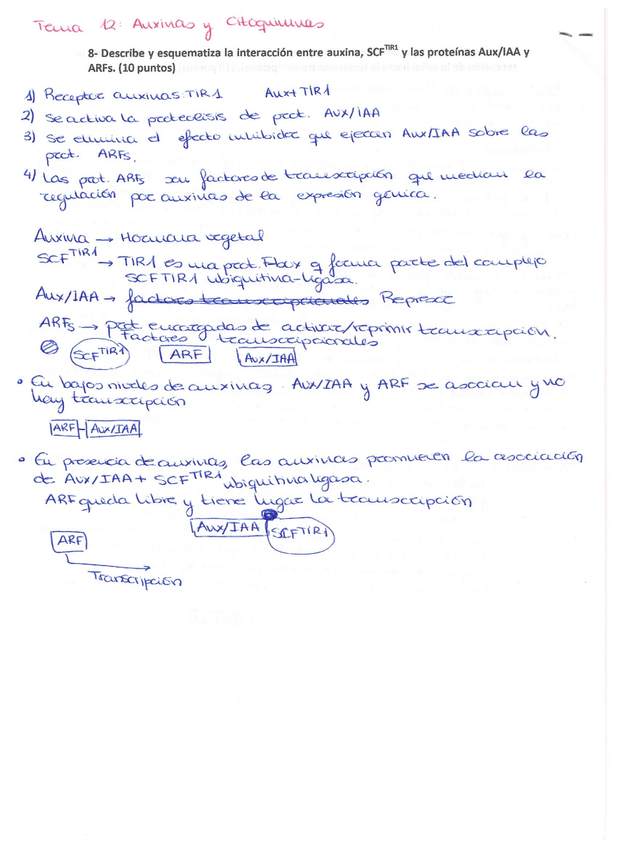 Tema 12: Auxinas y Citoquininas
8- Describe y esquematiza la interacción entre auxina, SCFTIR1 y las proteínas Aux/IAA y
ARFs. (10 puntos)
1) Receptor auxinas TIR1 Aux+TIR1
2) Se activa la proteolisis de prot. Aux/IAA
3) Se elimina el efecto inhibidor que ejercen Aux/IAA sobre las
prot. ARFs.
4) Las prot. ARFs son factores de transcripción que median la
regulación por auxinas de la expresión génica.
Auxina → Hormona vegetal
SCFTIR1 → TIR1 es una prot. Fbox q forma parte del complejo
SCFTIR1 ubiquitina-ligasa.
Aux/IAA → factores transcripcionales Represor
ARFs → prot. encargadas de activar/reprimir transcripción.
Factores transcripcionales
SCFTIR1 ARF Aux/IAA
• En bajos niveles de auxinas, Aux/IAA y ARF se asocian y no
hay transcripción
ARF-Aux/IAA
• En presencia de auxinas, las auxinas promueven la asociación
de Aux/IAA + SCFTIR1 ubiquitina ligasa.
ARF queda libre y tiene lugar la transcripción
Aux/IAA SCFTIR1
ARF
Transcripción